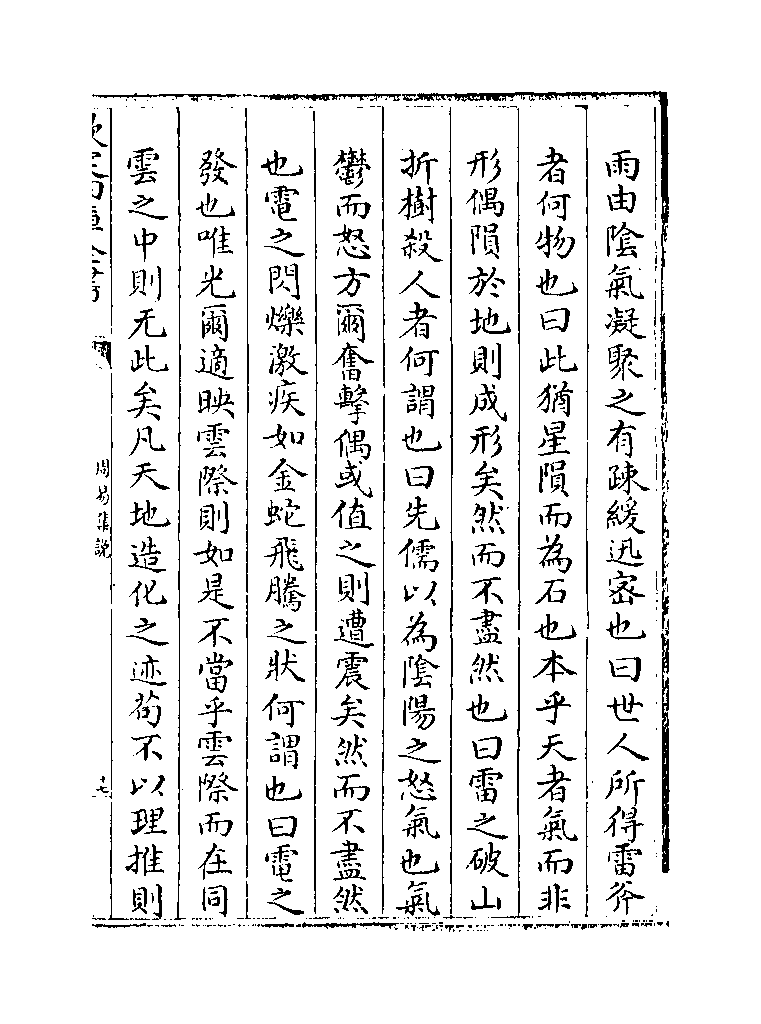 雨由陰氣凝聚之有疎緩迅密也曰世人所得雷斧
者何物也曰此猶星隕而為石也本乎天者氣而非
形偶隕於地則成形矣然而不盡然也曰雷之破山
折樹殺人者何謂也曰先儒以為陰陽之怒氣也氣
鬱而怒方爾奮擊偶或值之則遭震矣然而不盡然
也電之閃爍激疾如金蛇飛騰之狀何謂也曰電之
發也唯光爾適映雲際則如是不當乎雲際而在同
雲之中則无此矣凡天地造化之迹苟不以理推則
欽定四庫全書
周易集說
十七